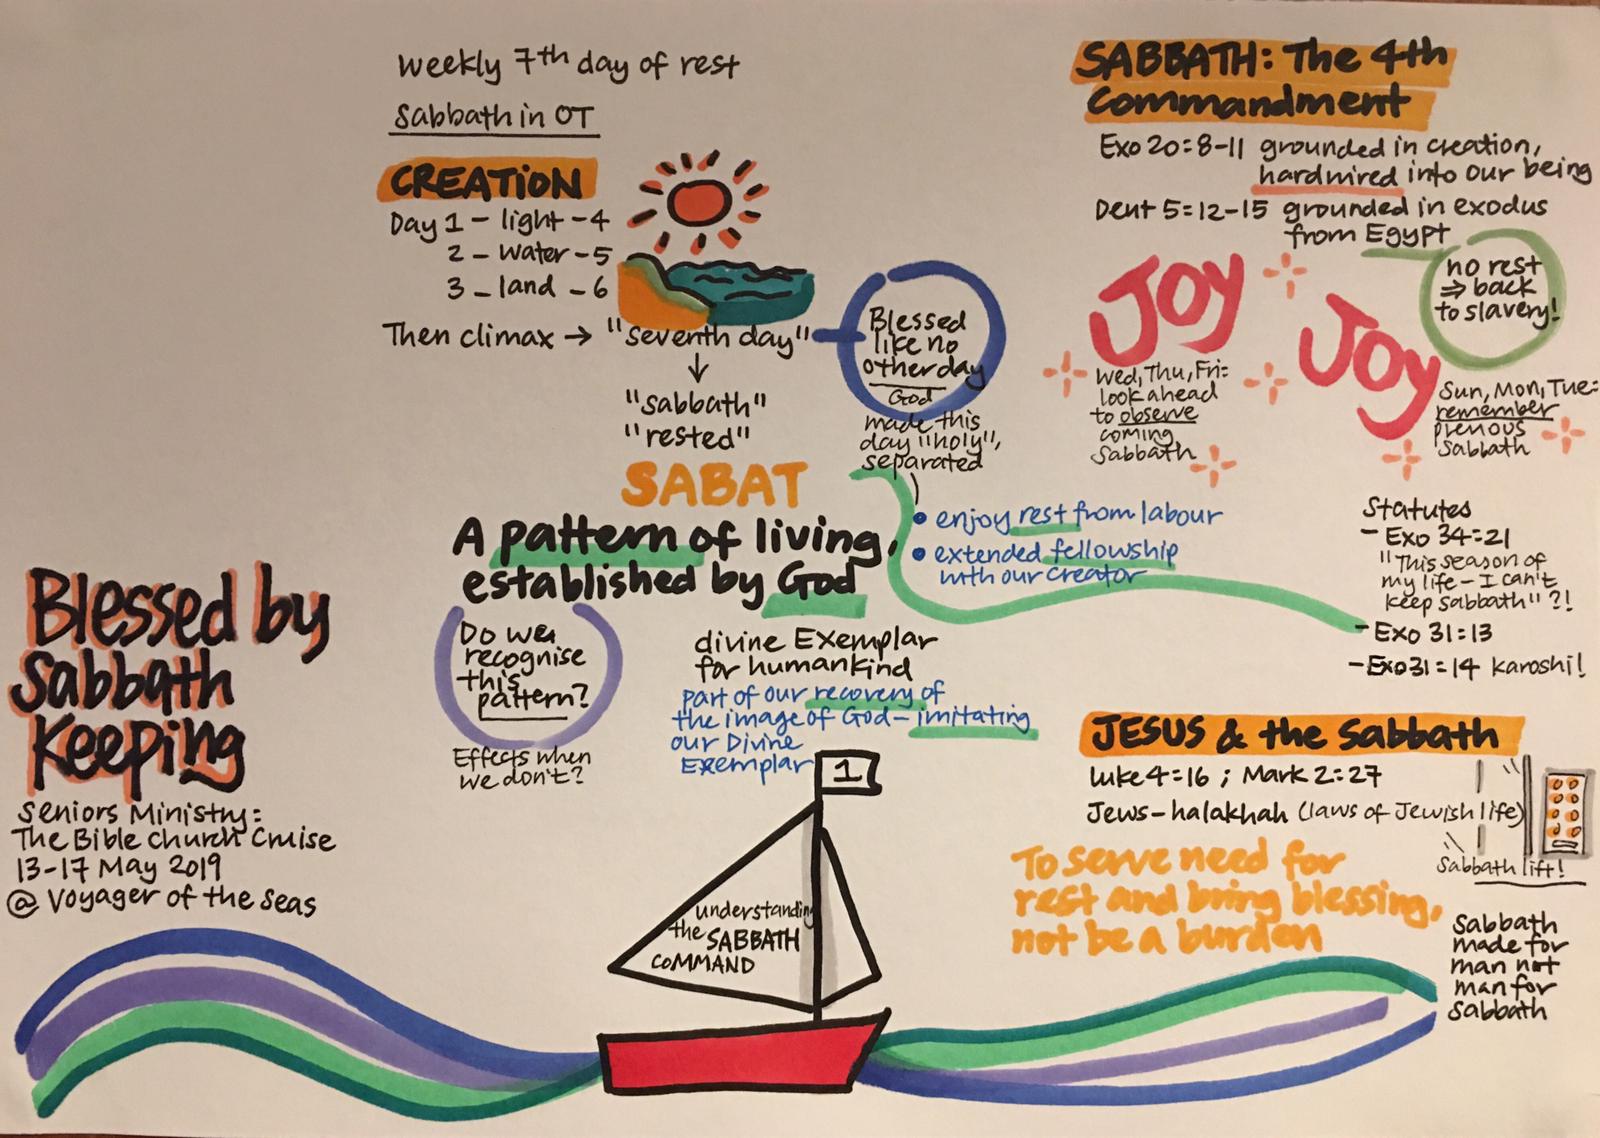 Blessed by
Sabbath
Keeping
Seniors Ministry:
The Bible Church Cruise
13-17 May 2019
@ Voyager of the Seas
weekly 7th day of rest
Sabbath in OT
CREATION
Day 1 - light - 4
2 - water - 5
3 - land - 6
Then climax → "seventh day"
"sabbath"
"rested"
SABAT
Blessed
like no
other day
God
made this
day "holy",
separated
• enjoy rest from labour
• extended fellowship
with our creator
A pattern of living,
established by God
Do we
recognise
this
pattern?
Effects when
we don't?
divine Exemplar
for humankind
part of our recovery of
the image of God - imitating
our Divine
Exemplar
1
understanding
the SABBATH
COMMAND
SABBATH: The 4th
Commandment
Exo 20:8-11 grounded in creation,
hardwired into our being
Deut 5:12-15 grounded in exodus
from Egypt
no rest
⇒ back
to slavery!
Joy
Wed, Thu, Fri:
look ahead
to observe
coming
Sabbath
Joy
Sun, Mon, Tue:
remember
previous
Sabbath
Statutes
- Exo 34:21
"This season of
my life - I can't
keep sabbath" ?!
- Exo 31:13
- Exo 31:14 karoshi!
JESUS & the Sabbath
Luke 4:16 ; Mark 2:27
Jews - halakhah (laws of Jewish life)
Sabbath lift!
To serve need for
rest and bring blessing,
not be a burden
Sabbath
made for
man not
man for
Sabbath